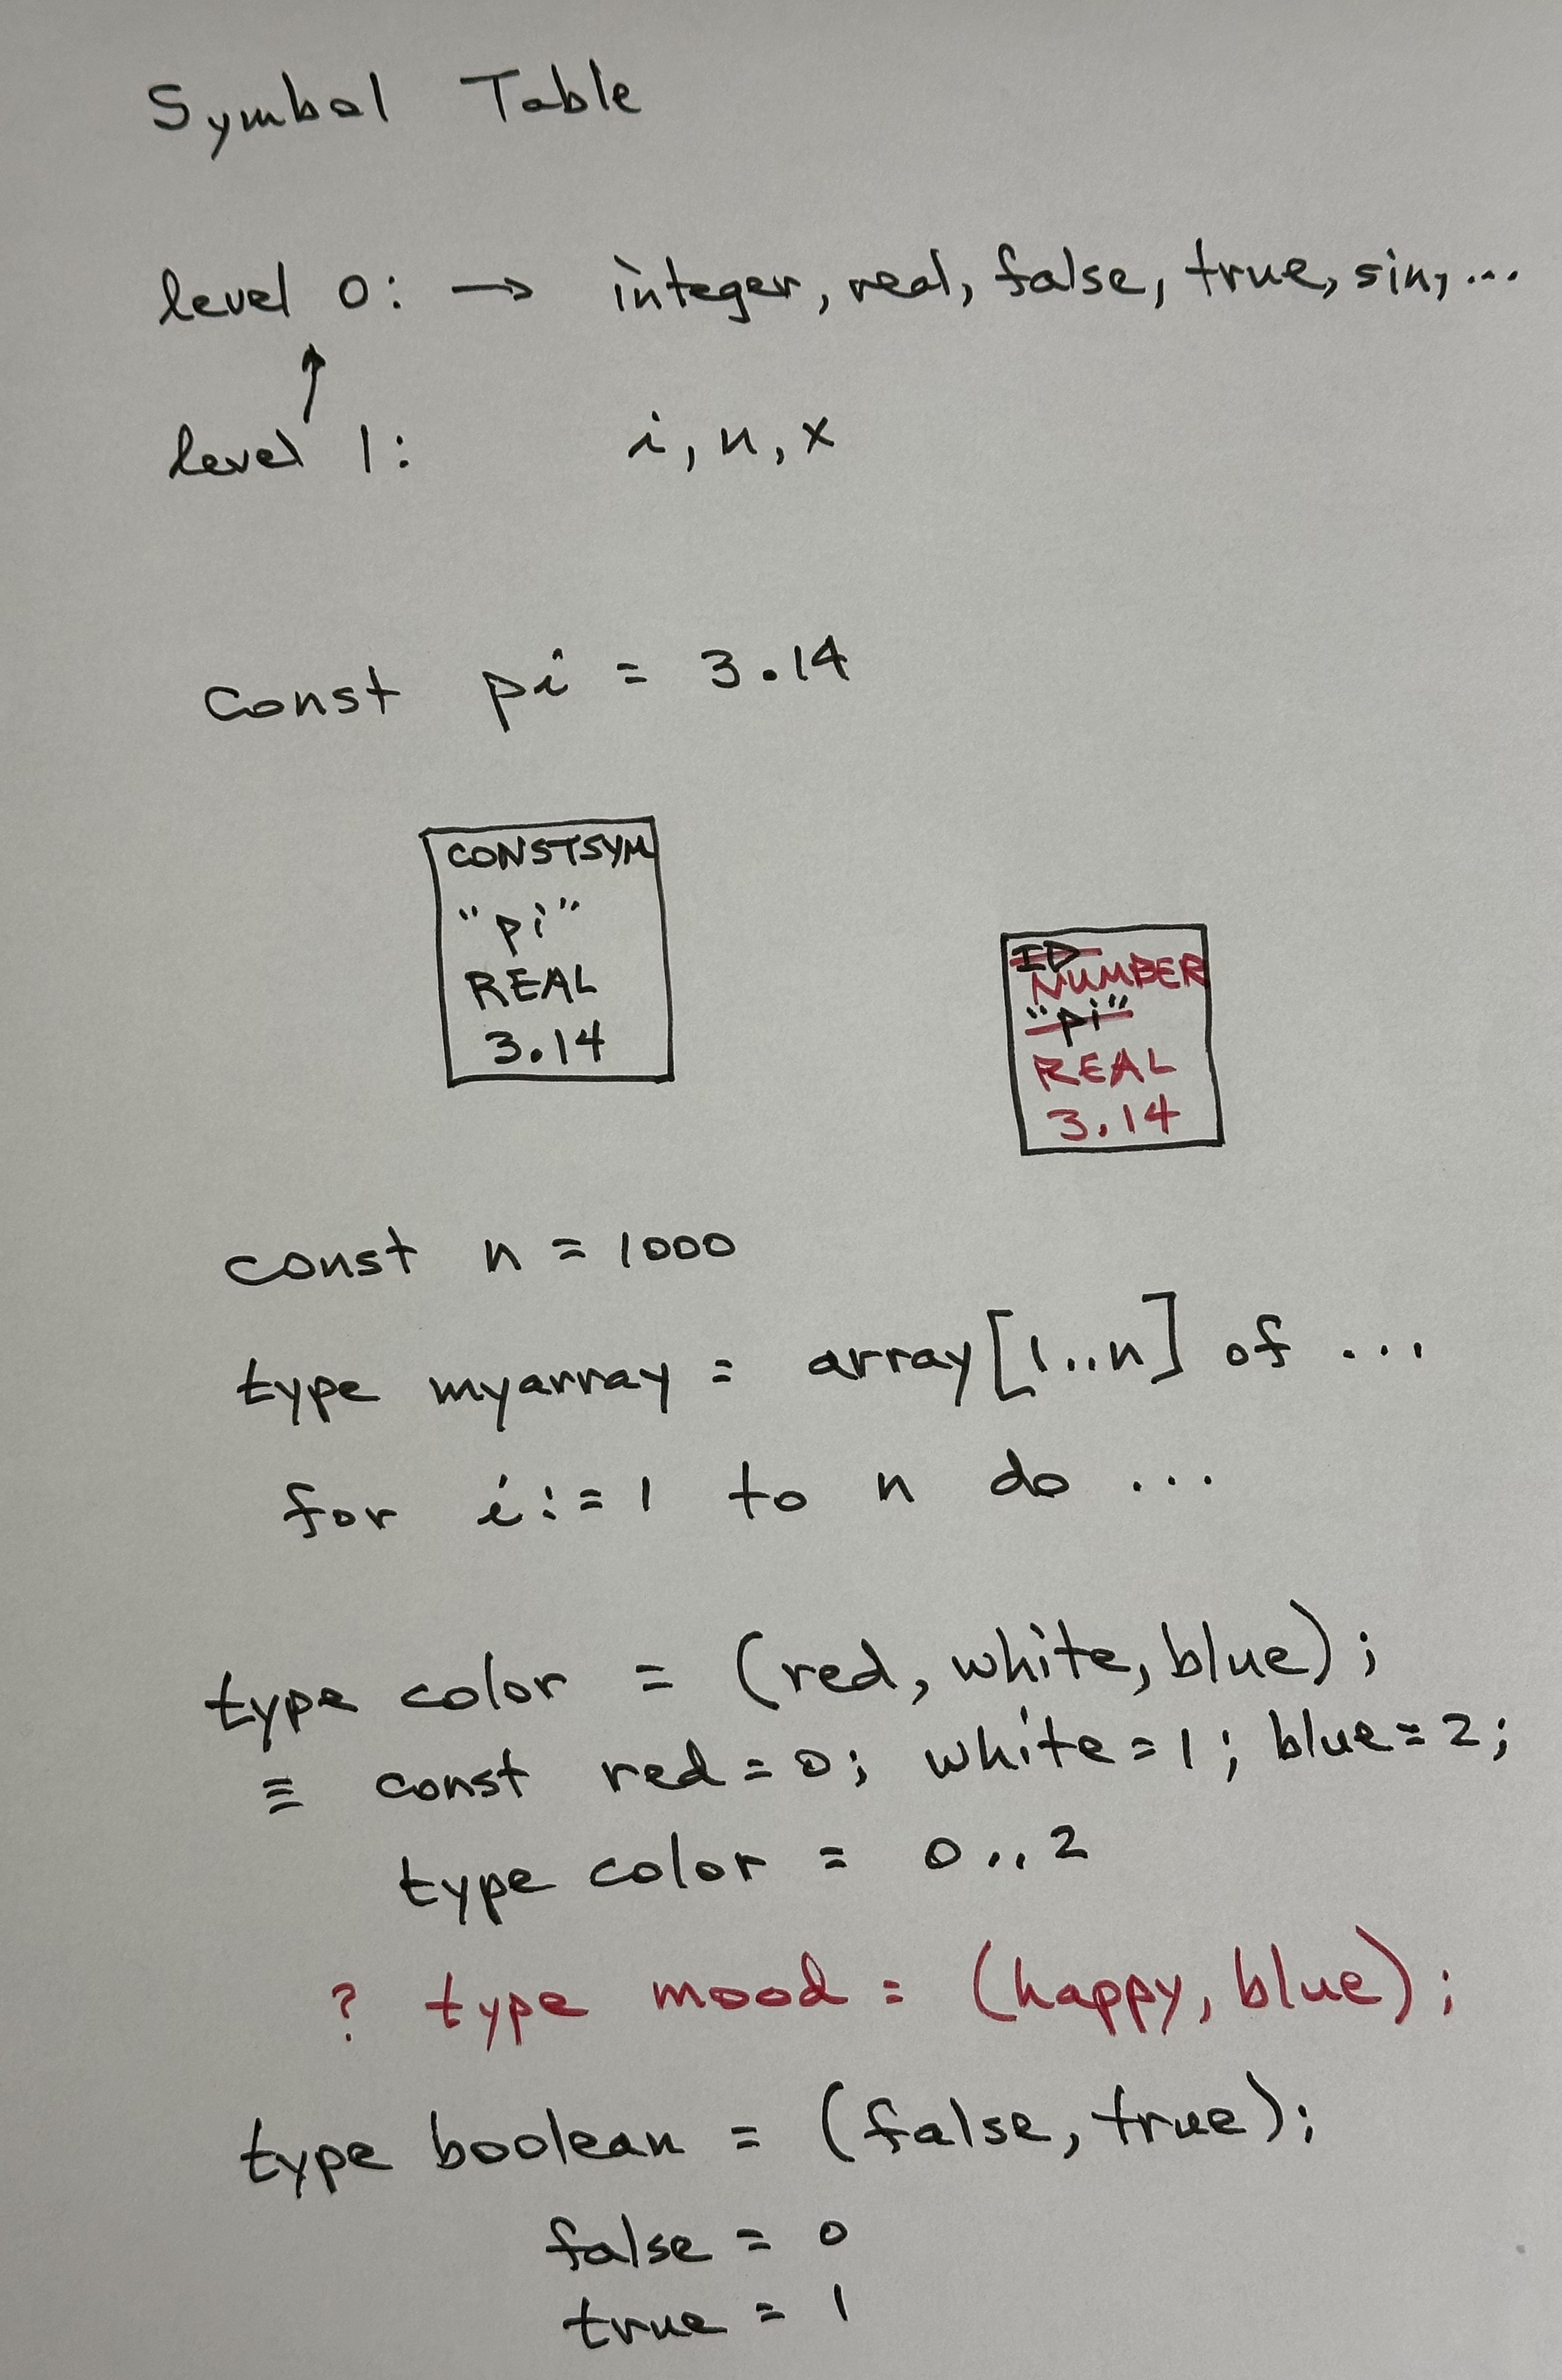 Symbol Table
level 0: → integer, real, false, true, sin, ...
level 1: i, n, x
const pi = 3.14
CONSTSYM
"pi"
REAL
3.14
ID
NUMBER
"pi"
REAL
3.14
const n = 1000
type myarray = array[1..n] of ...
for i:=1 to n do ...
type color = (red, white, blue);
≡ const red=0; white=1; blue=2;
type color = 0..2
? type mood = (happy, blue);
type boolean = (false, true);
false = 0
true = 1